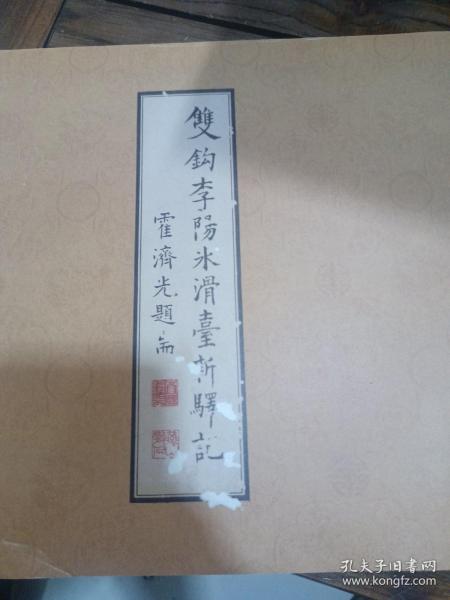 雙鈎李陽氷滑臺新驛記
霍濟光題耑
孔夫子旧书网
www.kongfz.com